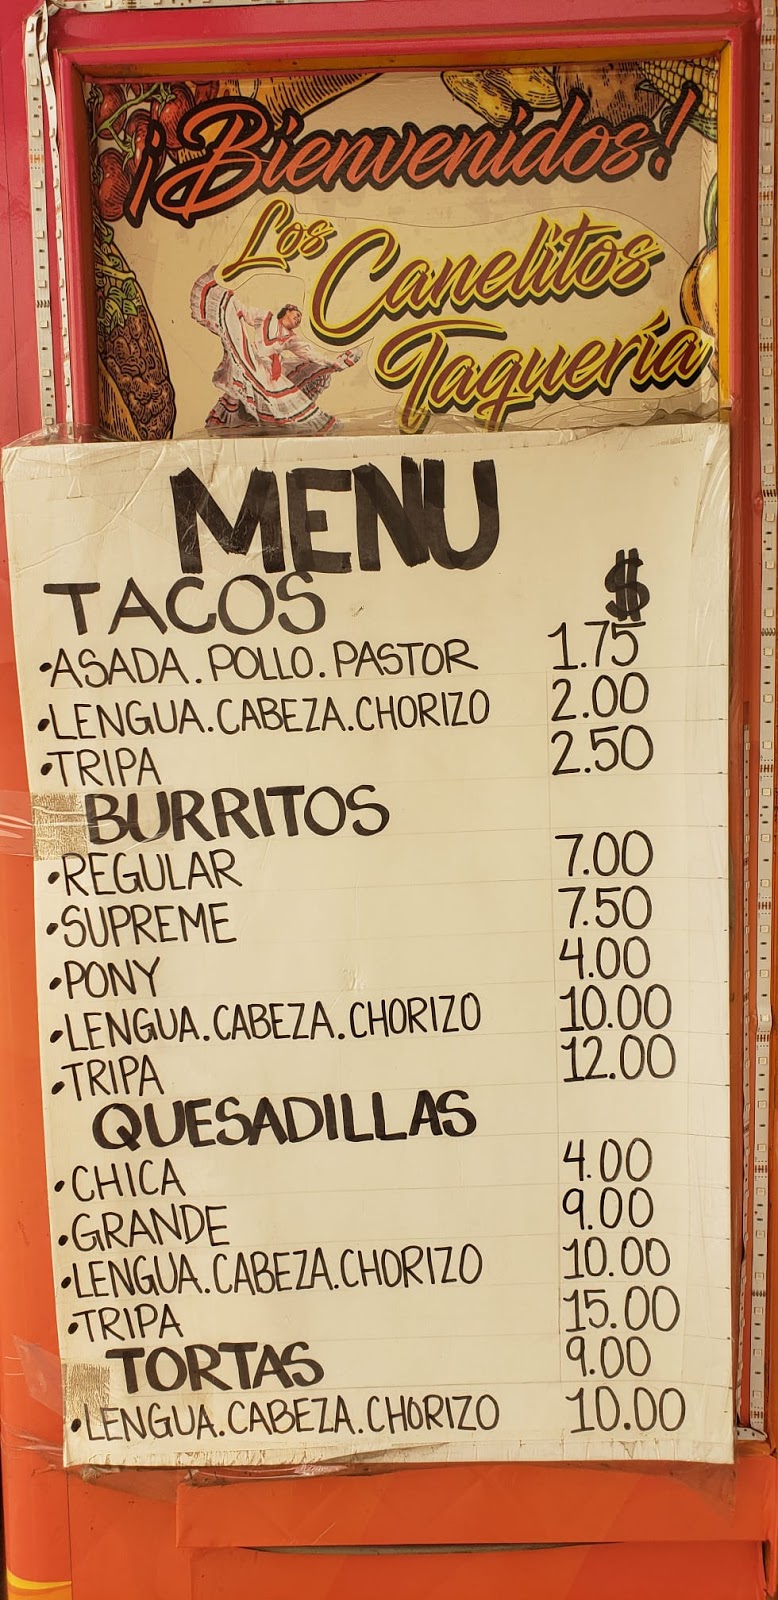 ¡Bienvenidos!
Los
Canelitos
Taquería
MENU
TACOS $
•ASADA.POLLO.PASTOR 1.75
•LENGUA.CABEZA.CHORIZO 2.00
•TRIPA 2.50
BURRITOS
•REGULAR 7.00
•SUPREME 7.50
•PONY 4.00
•LENGUA.CABEZA.CHORIZO 10.00
•TRIPA 12.00
QUESADILLAS
•CHICA 4.00
•GRANDE 9.00
•LENGUA.CABEZA.CHORIZO 10.00
•TRIPA 15.00
TORTAS 9.00
•LENGUA.CABEZA.CHORIZO 10.00